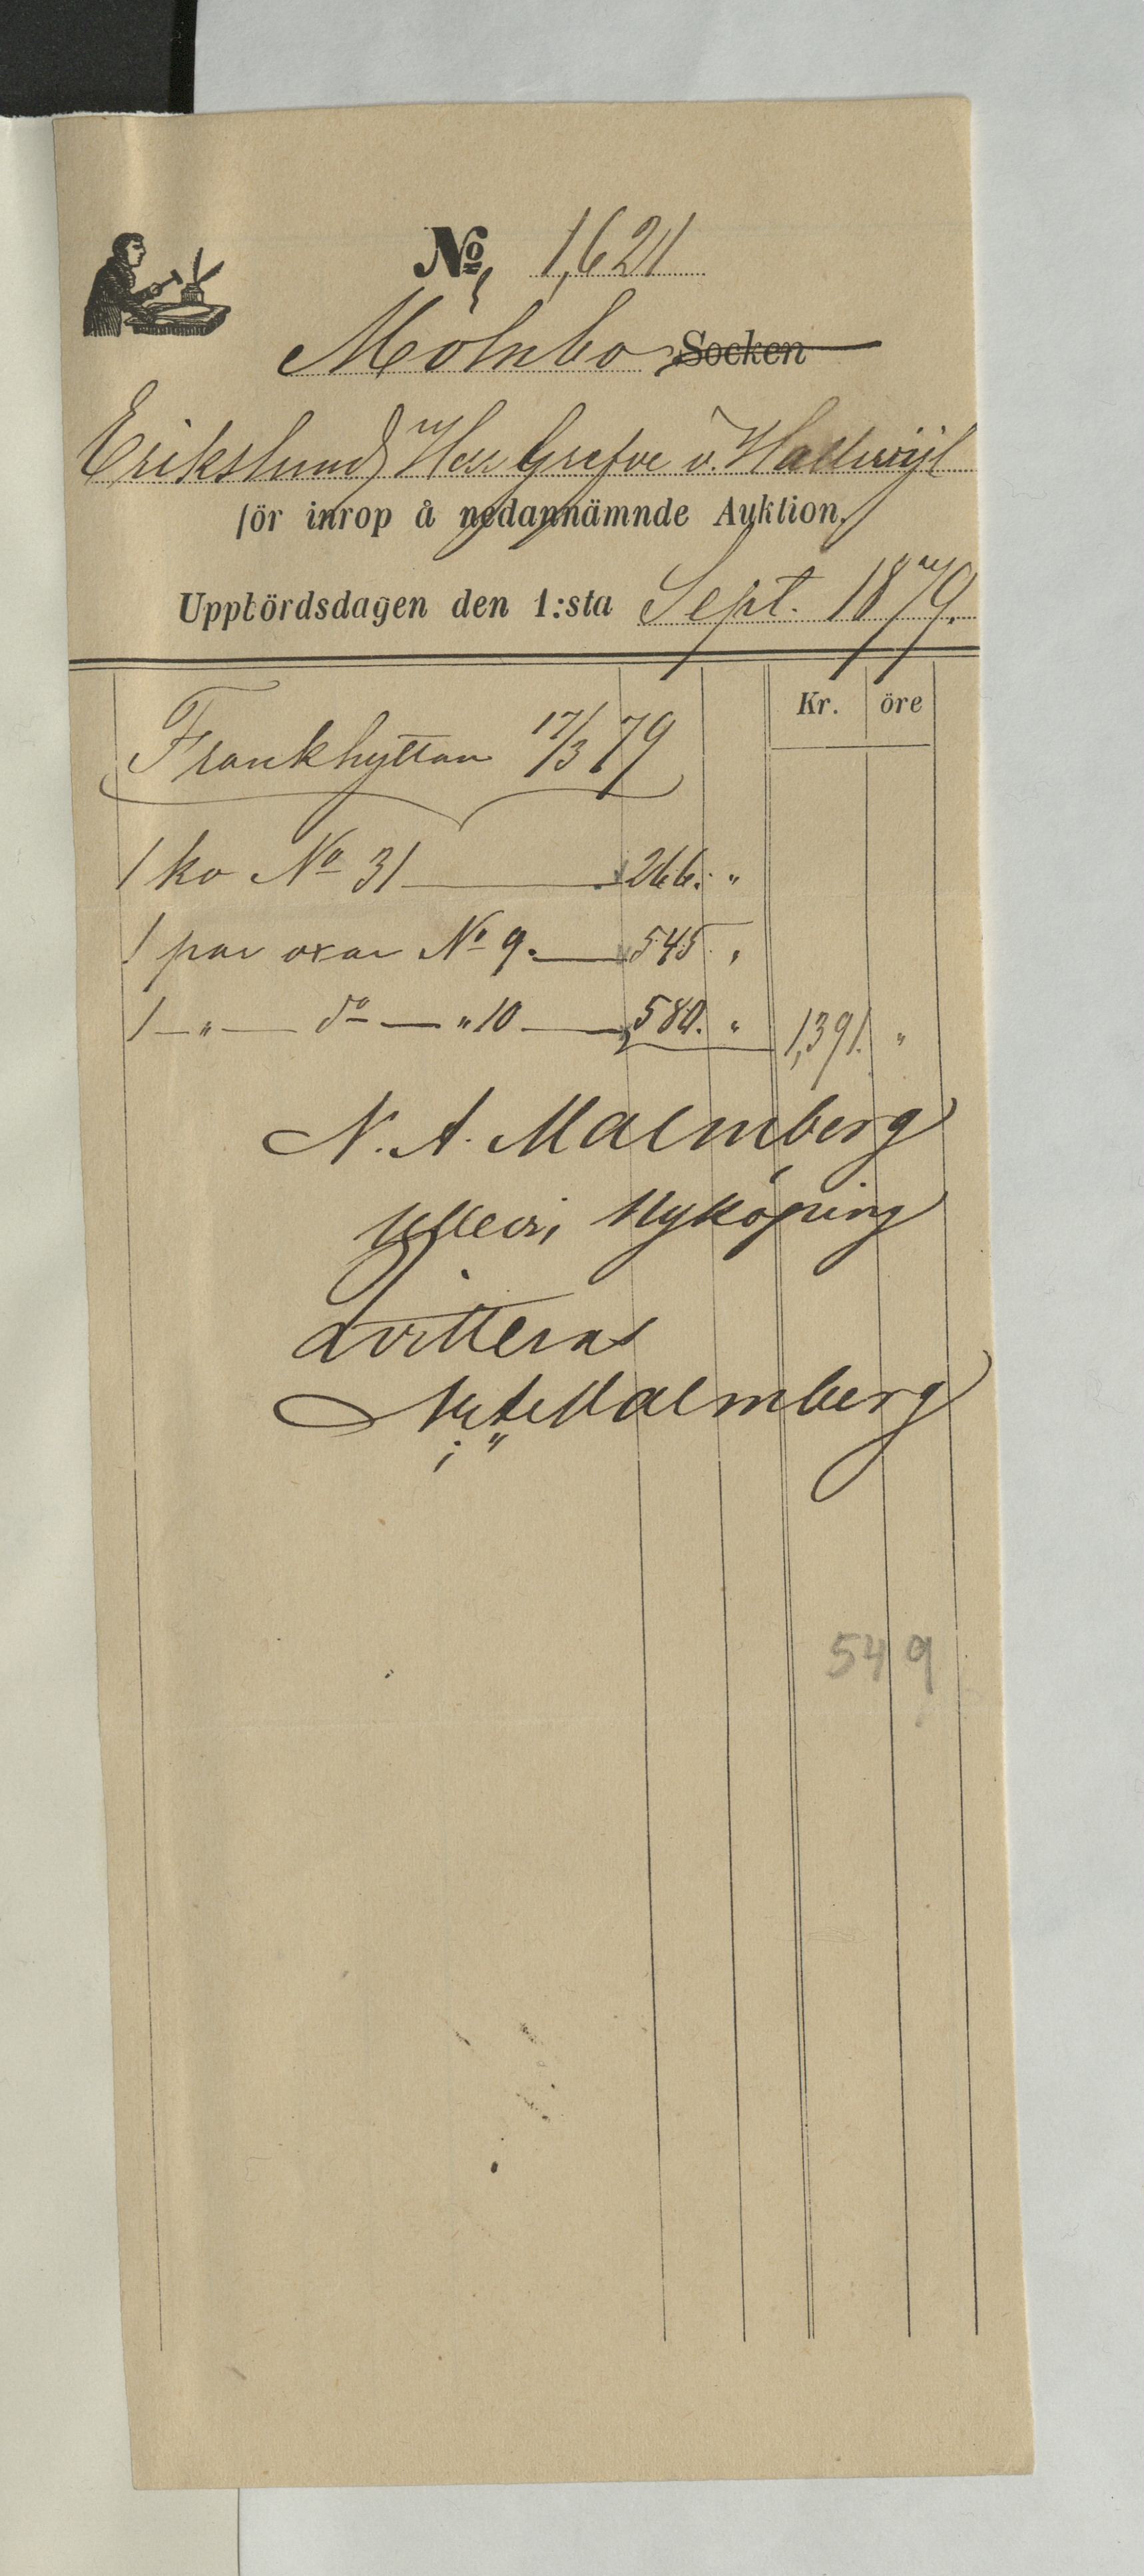 No 1,621
Mölnbo Socken
Erikslund Herr Grefve v. Hallwijl
för inrop å nedannämnde Auktion.
Uppbördsdagen den 1:sta Sept. 1879.
Kr. öre
Frankhyttan 17/3 79
1 ko No 31 266. "
1 par oxar No 9. 545. "
1 — " — do — " 10 580. " 1,391. "
N. A. Malmberg
Ullevi, Nyköping
Qvitteras
N. A. Malmberg
549